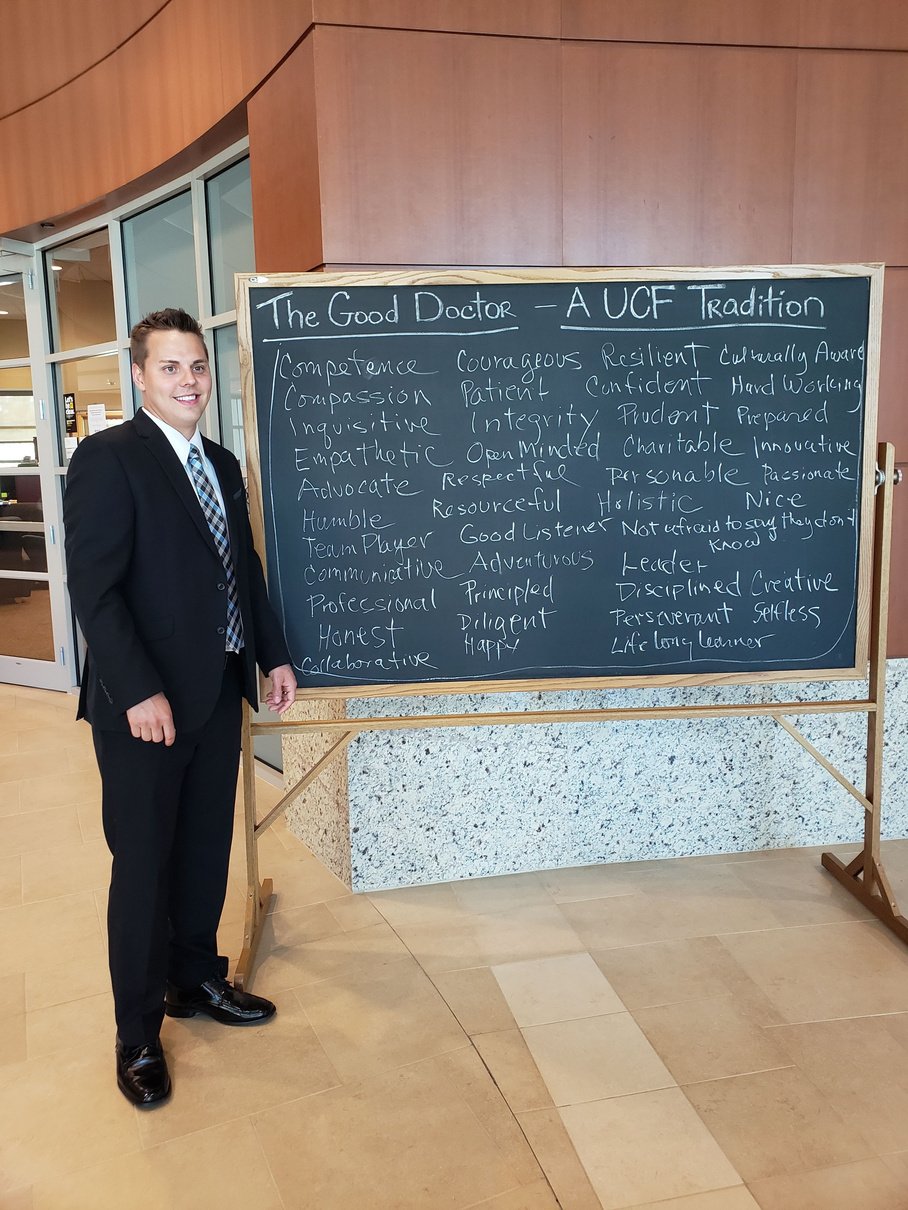 The Good Doctor - A UCF Tradition
Competence Courageous Resilient Culturally Aware
Compassion Patient Confident Hard Working
Inquisitive Integrity Prudent Prepared
Empathetic Open Minded Charitable Innovative
Advocate Respectful Personable Passionate
Humble Resourceful Holistic Nice
Team Player Good Listener Not afraid to say they don't
know
Communicative Adventurous Leader
Professional Principled Disciplined Creative
Honest Diligent Perseverant Selfless
Collaborative Happy Life long learner